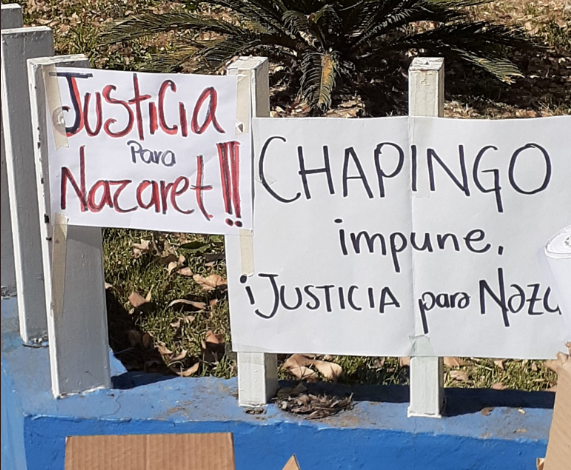 Justicia
Para
Nazaret!!!
CHAPINGO
impune.
¡JUSTICIA para